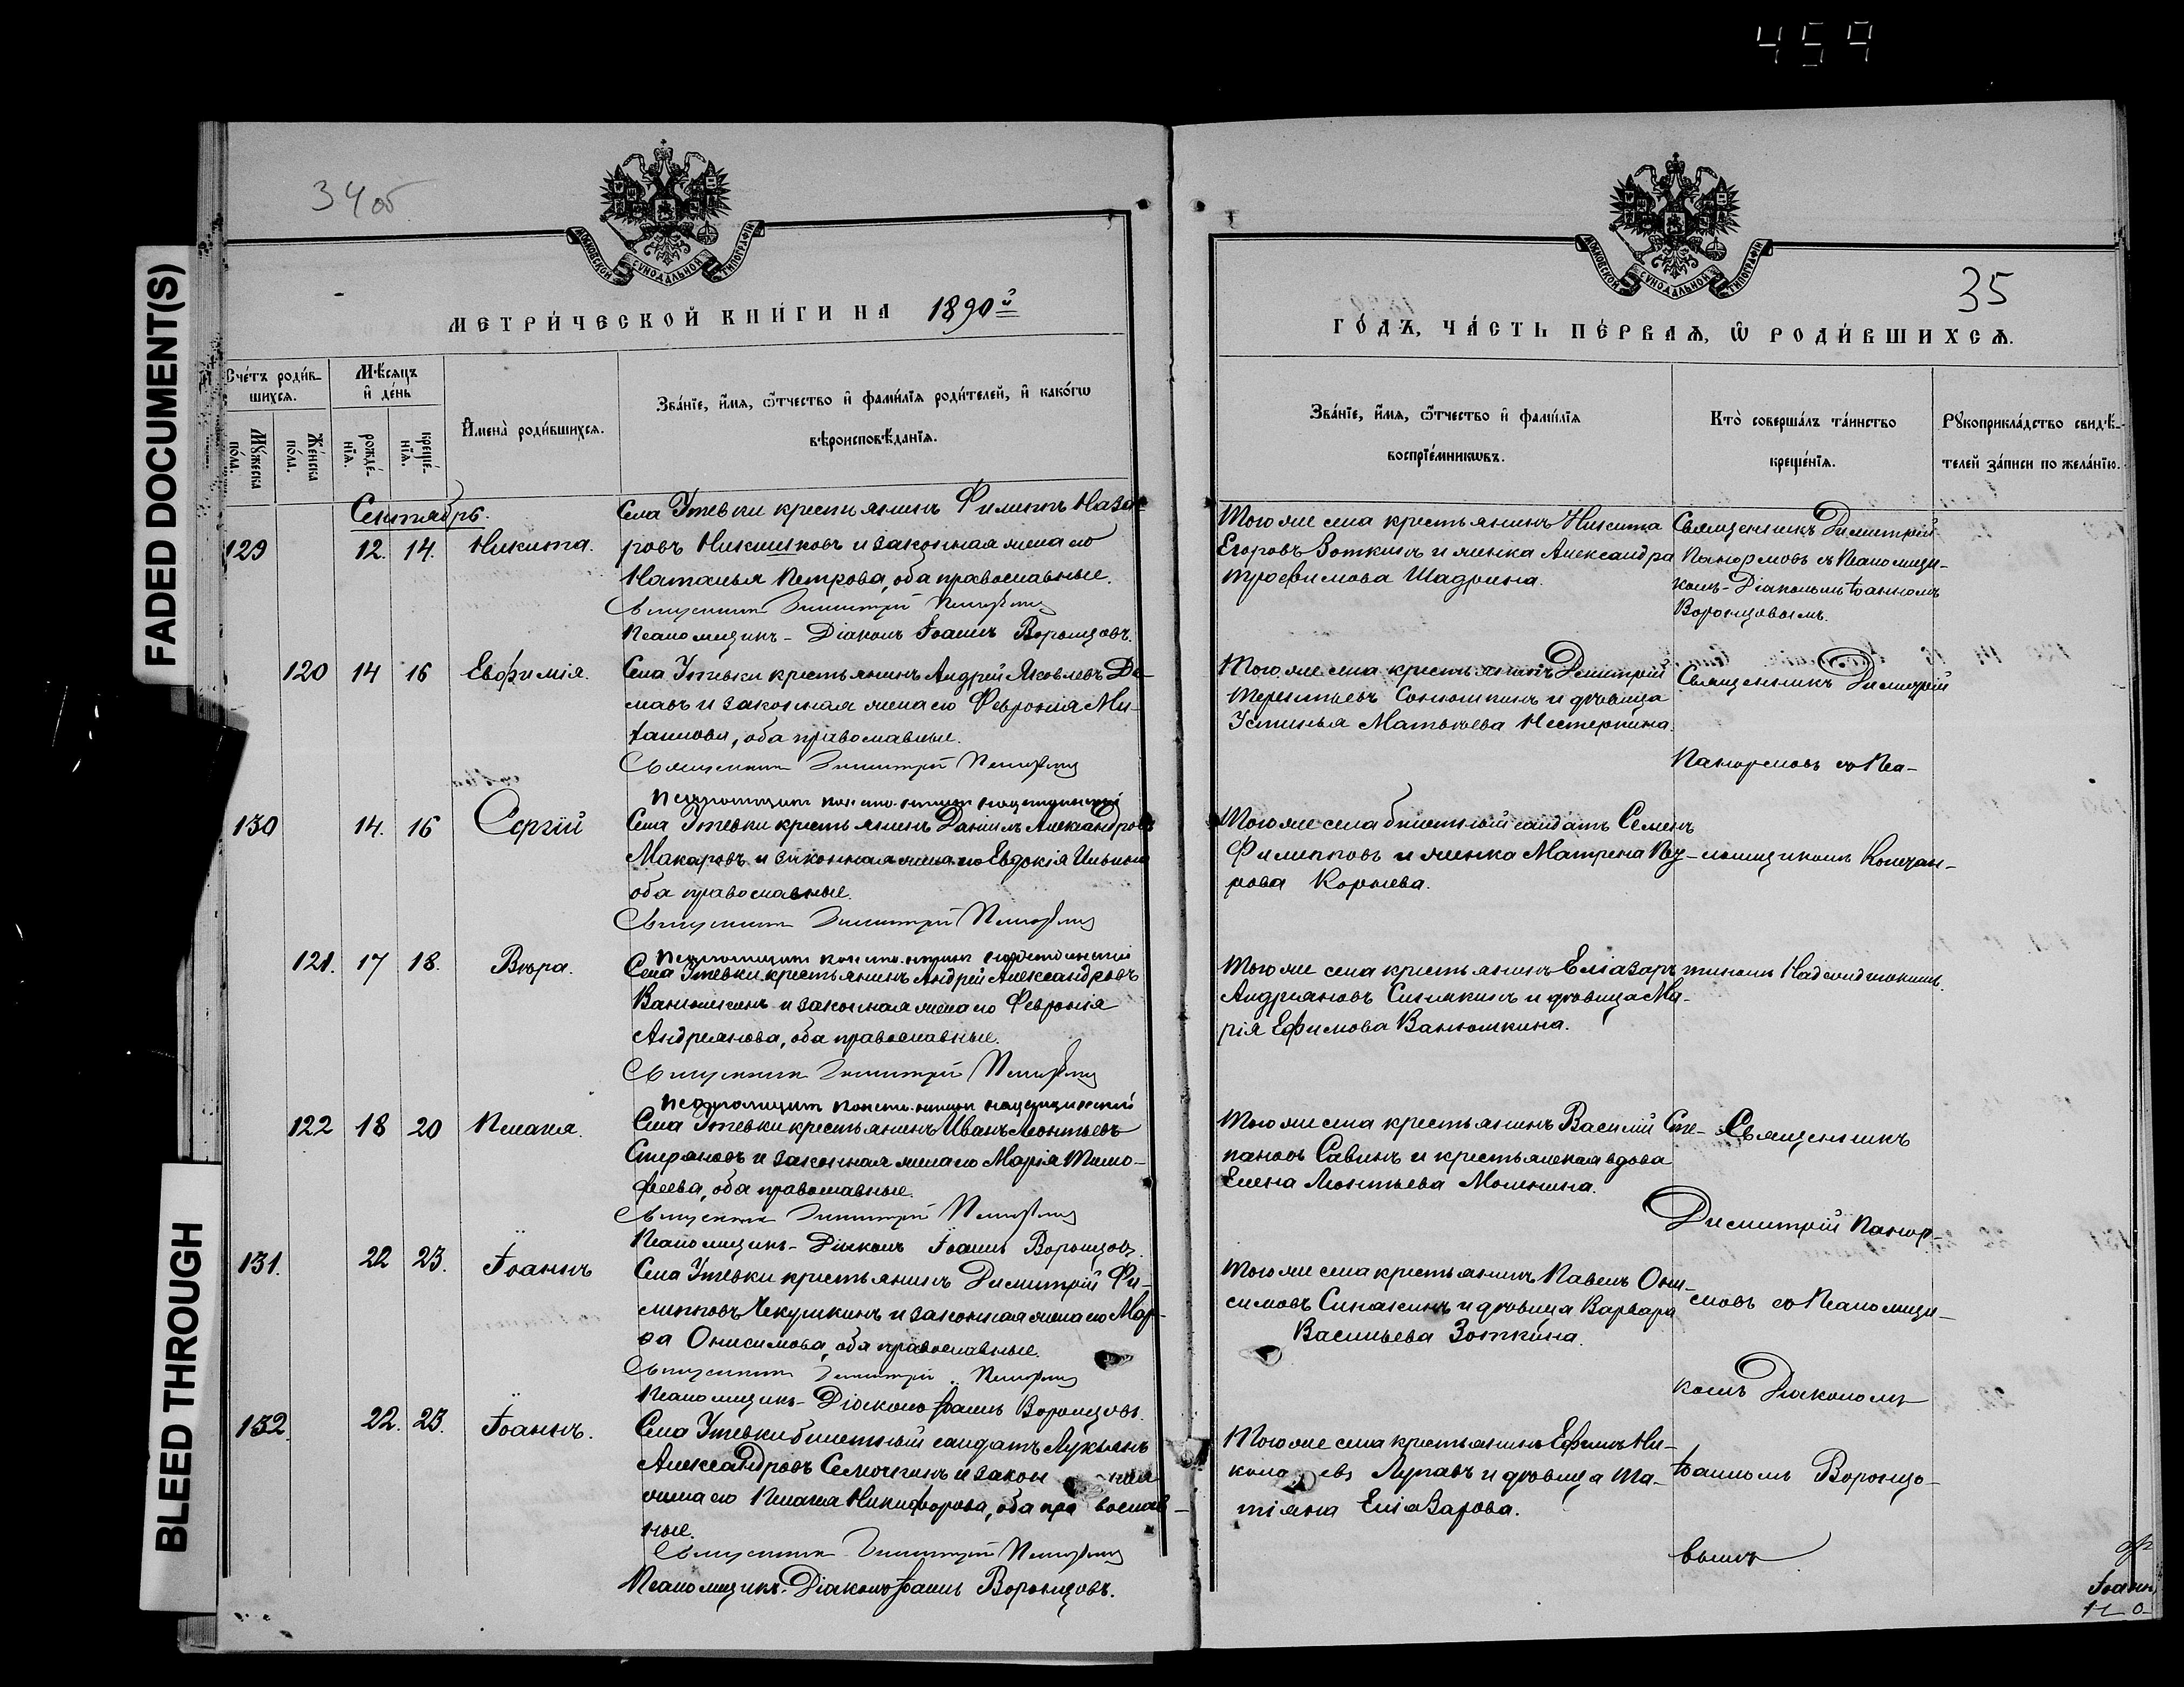 459
FADED DOCUMENT(S)
BLEED THROUGH
34 об
МОСКОВСКОЙ СѴНОДАЛЬНОЙ ТИПОГРАФІИ
МЕТРИ́ЧЕСКОЙ КНИ́ГИ НА 1890й
Сче́тъ роди́в-
шихся.
Мѣ́сяцъ
и҆ де́нь
Мꙋ́жеска
по́ла.
Же́нска
по́ла.
рожде́-
нїѧ.
креще́-
нїѧ.
И҆мена̀ роди́вшихсѧ.
Зва́нїе, и҆́мѧ, ѻ҆́тчество и҆ фами́лїѧ роди́телей, и҆ како́гѡ
вѣроисповѣ́данїѧ.
Сентябрь.
129 12. 14. Никита.
Села Утевки крестьянинъ Филиппъ Наза-
ровъ Никишковъ и законная жена его
Наталья Петрова, оба православные.
Священникъ Димитрій Панормовъ
Псаломщикъ-Діаконъ Іоаннъ Воронцовъ.
120 14 16 Евфимія.
Села Утевки крестьянинъ Андрей Яковлевъ Де-
мавъ и законная жена его Февронія Ми-
хаилова, оба православные.
Священникъ Димитрій Панормовъ
130 14. 16 Сергій
Села Утевки крестьянинъ Даніилъ Александровъ
Макаровъ и законная жена его Евдокія Ильина
оба православные.
Священникъ Димитрій Панормовъ
121. 17 18. Вѣра.
Села Утевки крестьянинъ Андрей Александровъ
Ванюшкинъ и законная жена его Февронія
Андреянова, оба православные.
Священникъ Димитрій Панормовъ
122 18 20 Пелагія.
Села Утевки крестьянинъ Иванъ Леонтьевъ
и законная жена его Марія Тимо-
феева, оба православные.
Священникъ Димитрій Панормовъ
Псаломщикъ-Діаконъ Іоаннъ Воронцовъ.
131. 22 23. Іоаннъ
Села Утевки крестьянинъ Димитрій Фи-
липповъ Чекушкинъ и законная жена его Мар-
ѳа Онисимова, оба православные.
Священникъ Димитрій Панормовъ
Псаломщикъ-Діаконъ Іоаннъ Воронцовъ.
132. 22. 23. Іоаннъ.
Села Утевки билетный солдатъ Лукьянъ
Александровъ Семочкинъ и закон ная
жена его Пелагія Никифорова, оба пра вослав-
ные.
Священникъ Димитрій Панормовъ
Псаломщикъ-Діаконъ Іоаннъ Воронцовъ.
МОСКОВСКОЙ СѴНОДАЛЬНОЙ ТИПОГРАФІИ
35
ГО́ДЪ, ЧА́СТЬ ПЕ́РВАѦ, Ѡ҆ РОДИ́ВШИХСѦ.
Зва́нїе, и҆́мѧ, ѻ҆́тчество и҆ фами́лїѧ
воспрїе́мникѡвъ.
Кто̀ соверша́лъ та́инство
креще́нїѧ.
Рꙋкоприкла́дство свидѣ́-
телей за́писи по жела́нїю.
Того же села крестьянинъ Никита
Егоровъ Зоткинъ и женка Александра
Трофимова Шадрина.
Священникъ Димитрій
Панормовъ съ Псаломщи-
комъ-Діакономъ Іоанномъ
Воронцовымъ.
Того же села крестьянинъ Димитрій
Терентьевъ Сонюшкинъ и дѣвица
Устинья Матвѣева Нестеркина.
Священникъ Димитрій
Панормовъ со Пса-
Того же села билетный солдатъ Семенъ
Филипповъ и женка Матрена
рова Корнева.
ломщикомъ Констан-
Того же села крестьянинъ Еліазаръ
Андріановъ Синичкинъ и дѣвица Ма-
рія Ефимова Ванюшкина.
тиномъ
Того же села крестьянинъ Василій Сте-
пановъ Савинъ и крестьянская вдова
Елена Леонтьева Моленина.
Священникъ
Димитрій Панор-
Того же села крестьянинъ Павелъ Они-
симовъ Синажинъ и дѣвица Варвара
Васильева Зоткина.
мовъ со Псаломщи-
комъ Діакономъ
Того же села крестьянинъ Ефимъ Ни-
кола евъ Лупавъ и дѣвица Та-
тіяна Еліазарова.
Іоанномъ Воронцо-
вымъ